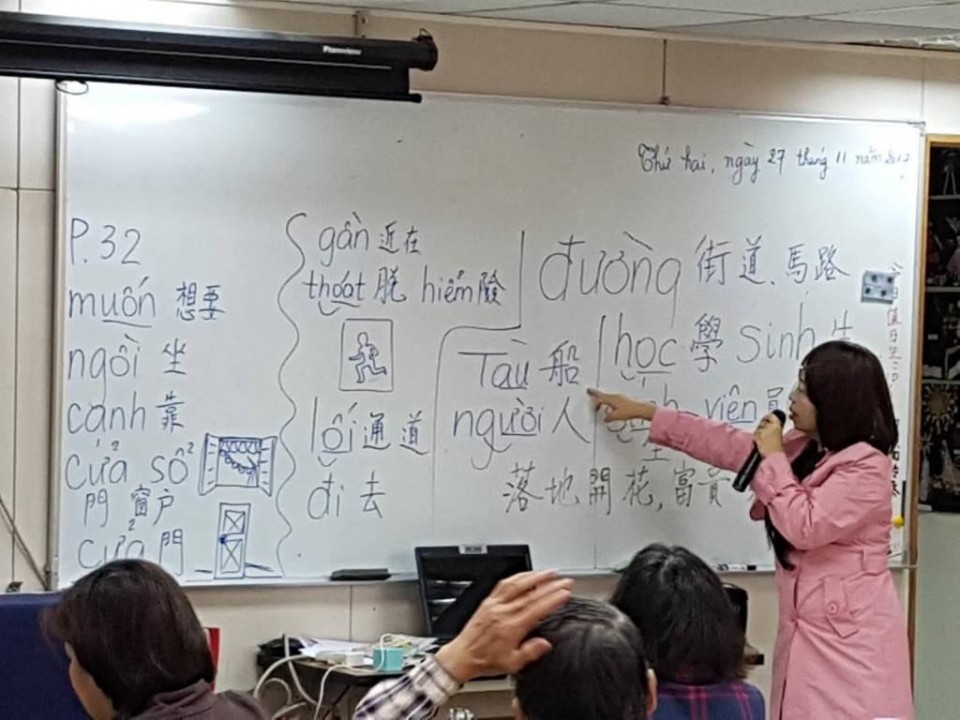 Thứ hai, ngày 27 tháng 11 năm
P.32
muốn 想要
ngồi 坐
cạnh 靠
cửa² sổ²
門 窗户
cửa² 門
gần 近在
thoát 脫 hiểm 險
lối 通道
đi 去
đường 街道.馬路
Tàu 船
người 人
học 學 sinh 生
viên
落地開花,富貴